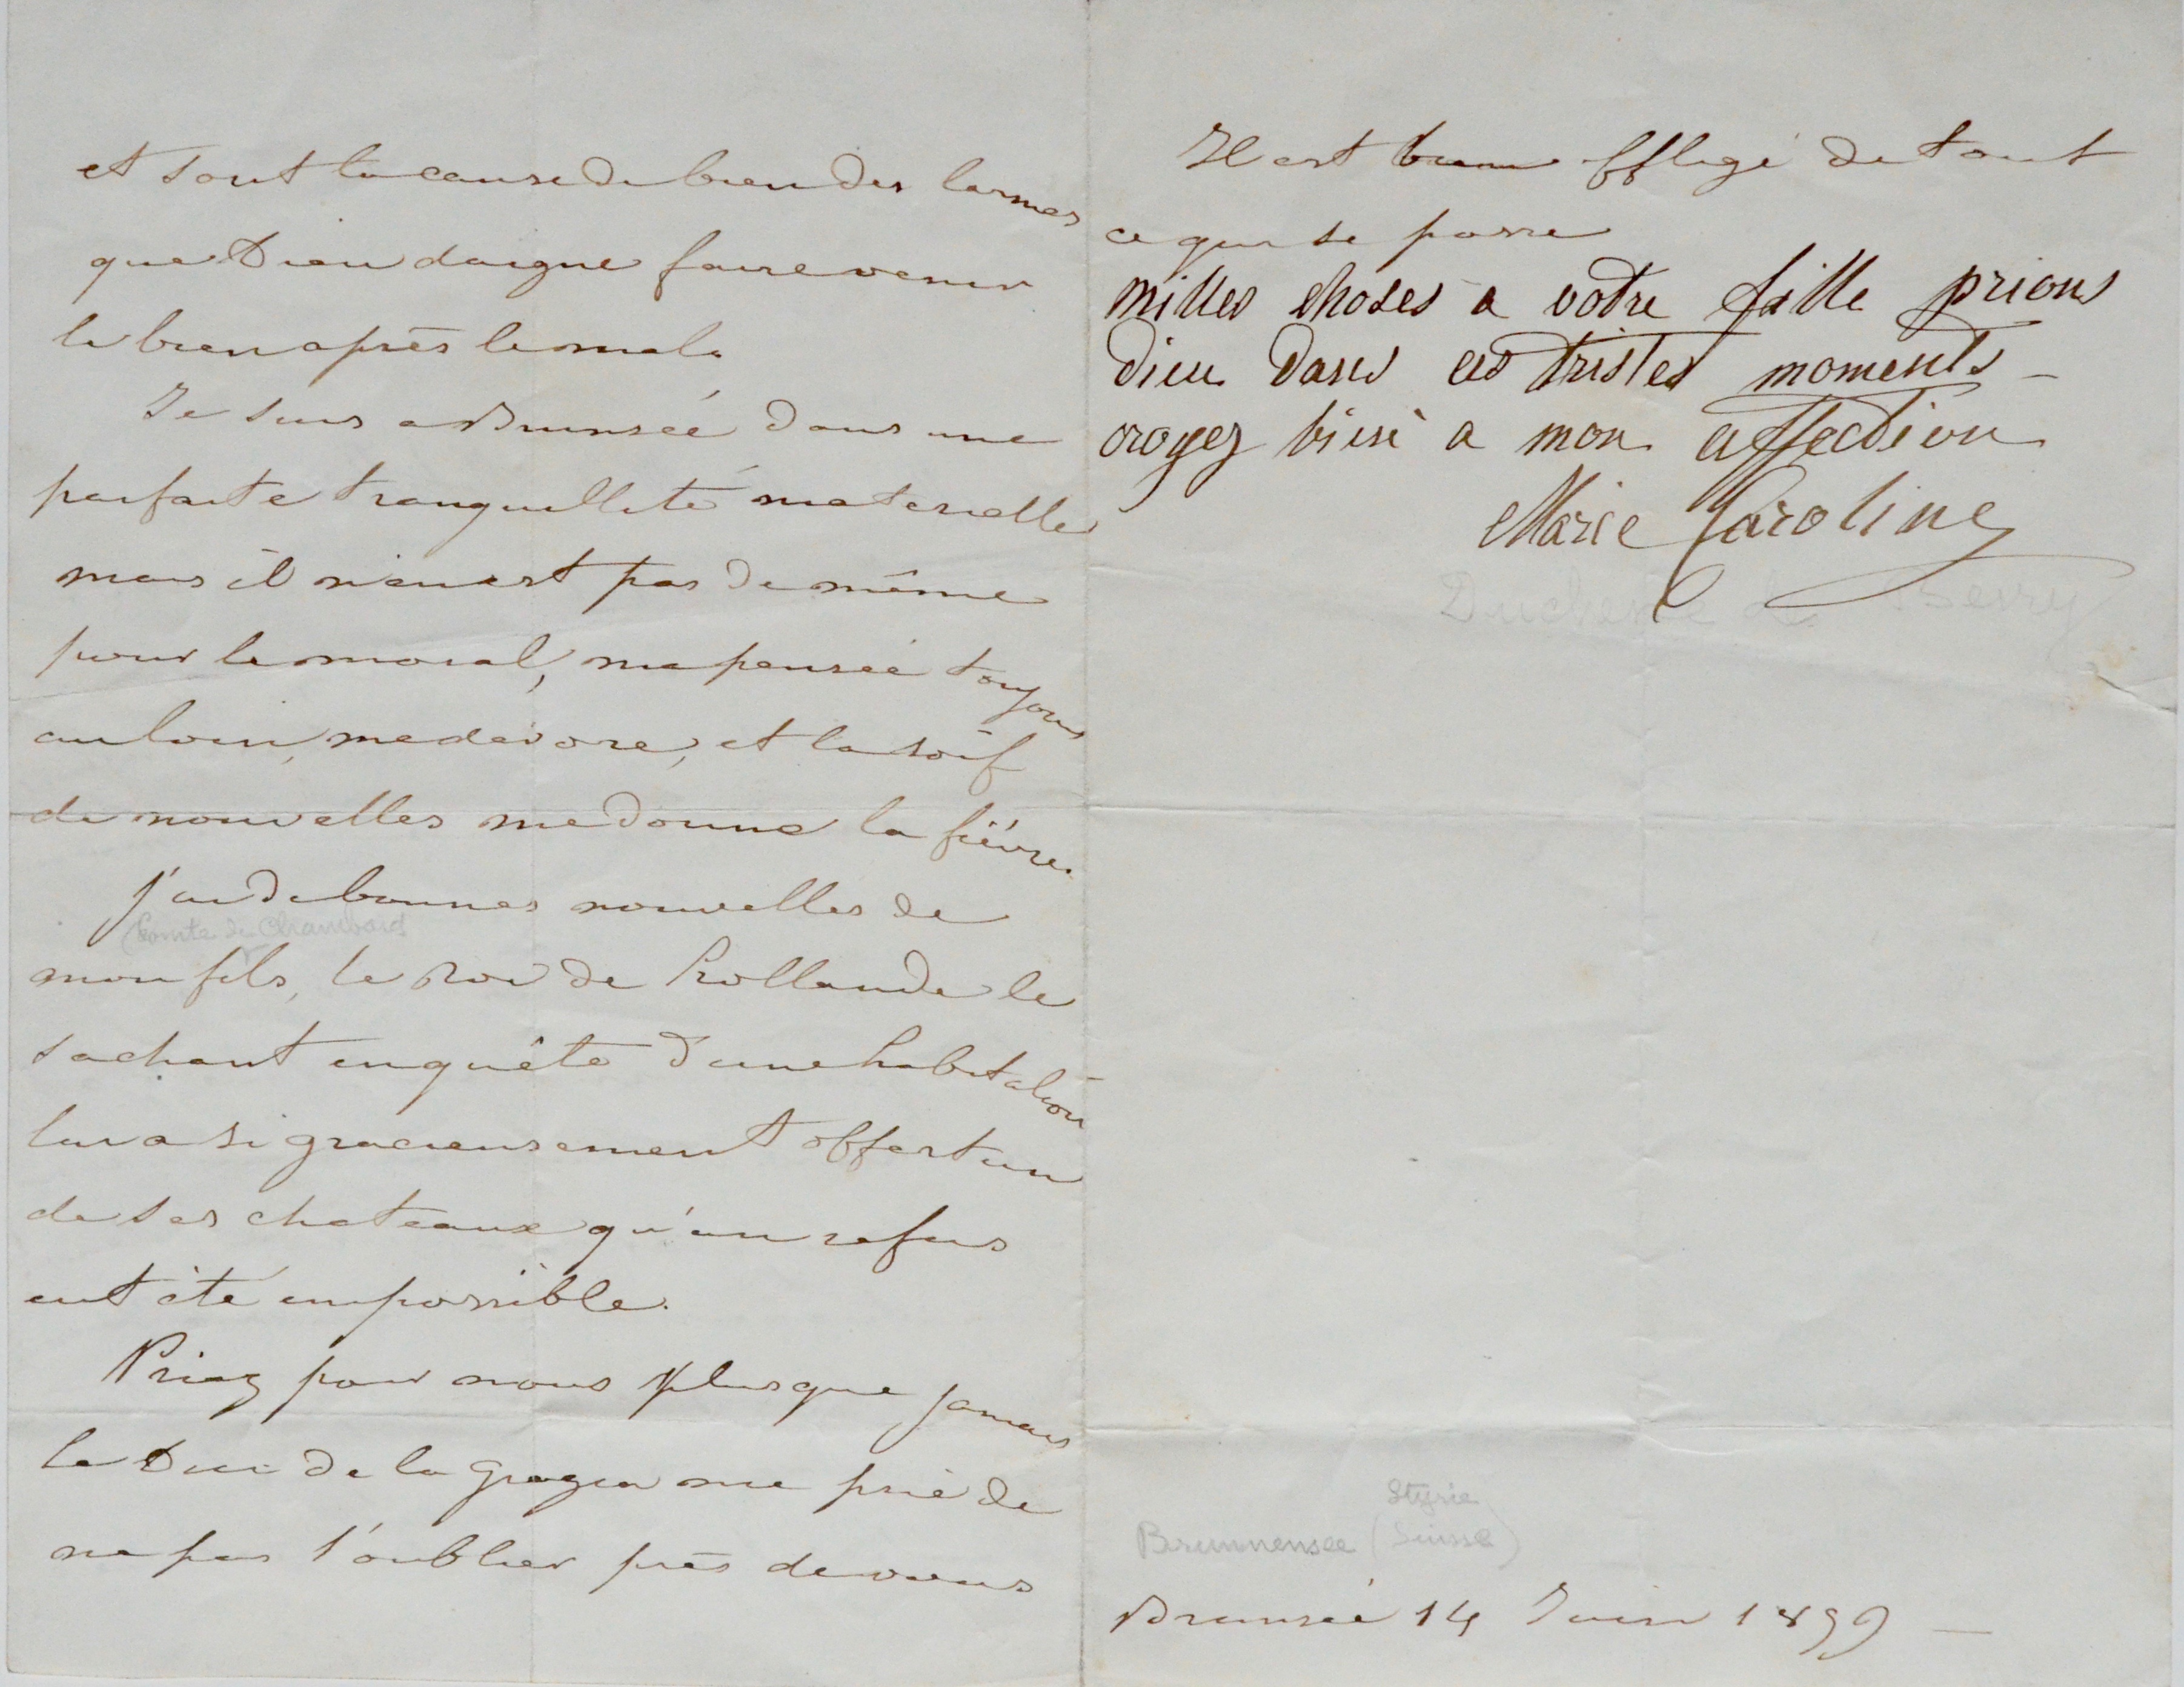 et sont la cause de bien des larmes
que Dieu daigne faire venir
le bien après le mal.
Je suis a Brunsée dans une
parfaite tranquillité materielle
mais il n'en est pas de même
pour le moral, ma pensée toujours
au loin, me devore, et la soif
de nouvelles me donne la fièvre.
j'ai de bonnes nouvelles de
(Comte de Chambord
mon fils, le Roi de hollande le
sachant en quête d'une habitation
lui a si gracieusement offert un
de ses chateaux qu'un refus
eut été impossible.
Priez pour nous plus que jamais
le Duc de la Grazia me prie de
ne pas l'oublier près de vous
Il est bien affligé de tout
ce qui se passe
milles choses a votre fille prions
dieu dans ces tristes moments –
croyez bien a mon affection
Marie Caroline
Duchesse de Berry
Styrie
Brunnensee (Suisse)
Brunsée 14 Juin 1859 —